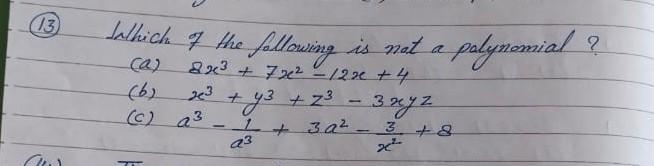 (13) Which of the following is not a polynomial ?
(a) 8x³ + 7x² – 12x + 4
(b) x³ + y³ + z³ – 3xyz
(c) a³ – 1/a³ + 3a² – 3/x² + 8